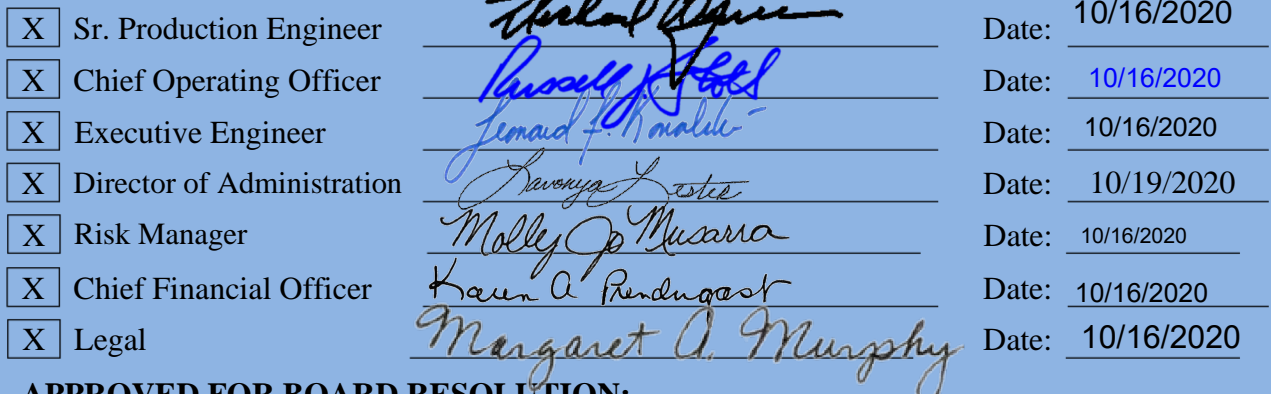 X Sr. Production Engineer Date: 10/16/2020
X Chief Operating Officer Russell J. Date: 10/16/2020
X Executive Engineer Date: 10/16/2020
X Director of Administration Lavonya Lester Date: 10/19/2020
X Risk Manager Molly Jo Musarra Date: 10/16/2020
X Chief Financial Officer Karen A Prendergast Date: 10/16/2020
X Legal Margaret A. Murphy Date: 10/16/2020
APPROVED FOR BOARD RESOLUTION: